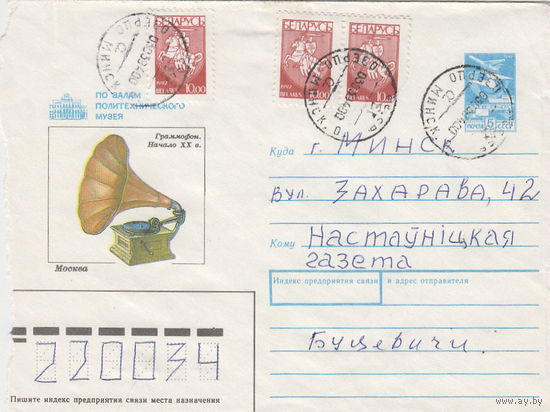 БЕЛАРУСЬ
10.00
1992 BELARUS
БЕЛАРУСЬ
1992 BELARUS 10.00
БЕЛАРУСЬ
10.00
МИНСК
ПО ЗАЛАМ
ПОЛИТЕХНИЧЕСКОГО
МУЗЕЯ
ПОЧТА 5 СССР
Граммофон.
Начало XX в.
Москва
Куда г. МИНСК
вул. ЗАХАРАВА, 42
Кому НАСТАЎНІЦКАЯ
газета
Индекс предприятия связи и адрес отправителя
Буцевичи.
220034
Пишите индекс предприятия связи места назначения
www.ay.by